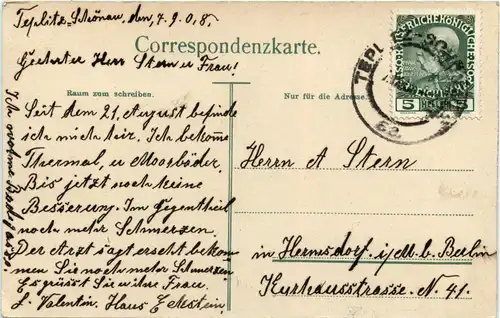 Teplitz-Schönau, den, 7.9.0.8.
Correspondenzkarte.
Geehrter Herr Stern u Frau!
Raum zum schreiben.
Nur für die Adresse.
Seit dem 21. August befinde
ich mich hir. Ich bekome
Thermal, u Moorbäder.
Bis jetzt noch keine
Besserung. Im Gegentheil
noch mehr Schmerzen.
Der Arzt sagt erscht bekom
men Sie noch mehr Schmerzen
Es grüsst Sie u ihre Frau.
L. Valentin, Haus Edelstein,
Ich wohne
Herrn A Stern
in Hermsdorf i/M b. Berlin
Kurhausstrasse. N. 41.
KAISERLICHE KÖNIGLICHE
5 HELLER 5
TEPLITZ-SCHÖNAU